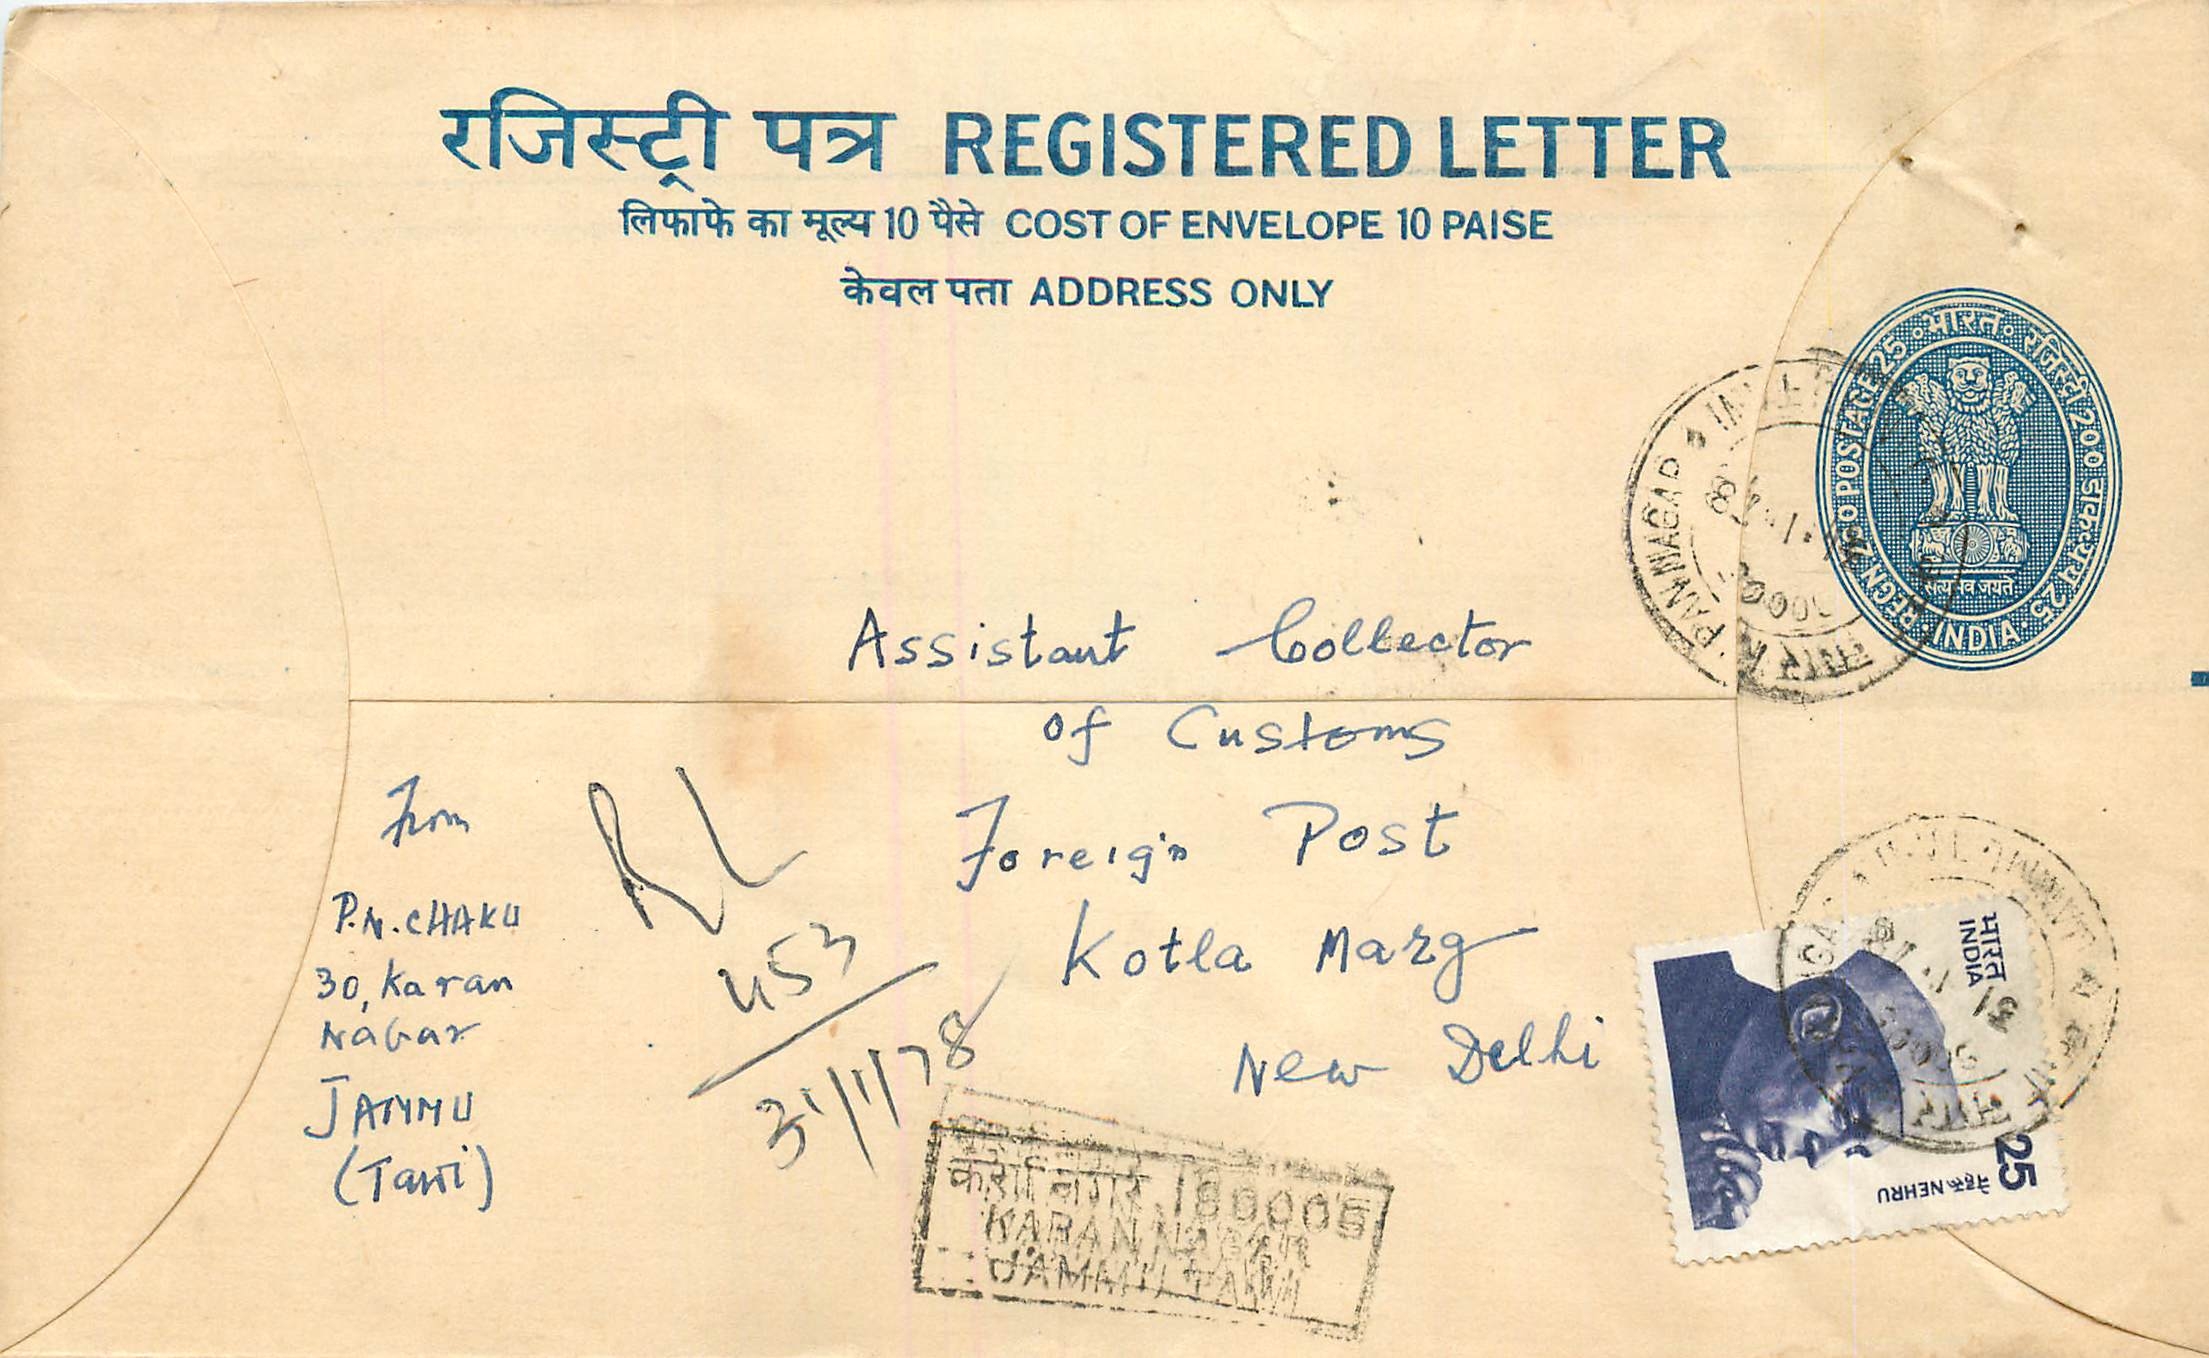 रजिस्ट्री पत्र REGISTERED LETTER
लिफाफे का मूल्य 10 पैसे COST OF ENVELOPE 10 PAISE
केवल पता ADDRESS ONLY
भारत
रजिस्ट्री 200 डाक-मूल्य 25
REGN 200 POSTAGE 25
सत्यमेव जयते
INDIA
Assistant Collector
of Customs
Foreign Post
Kotla Marg
New Delhi
From
P.N. CHAKU
30, Karan
Nagar
JAMMU
(Tawi)
RL
453
31/1/78
भारत
INDIA
25
नेहरू NEHRU
नगर
31.1.78
नगर
180005
KARAN NAGAR
JAMMU TAWI